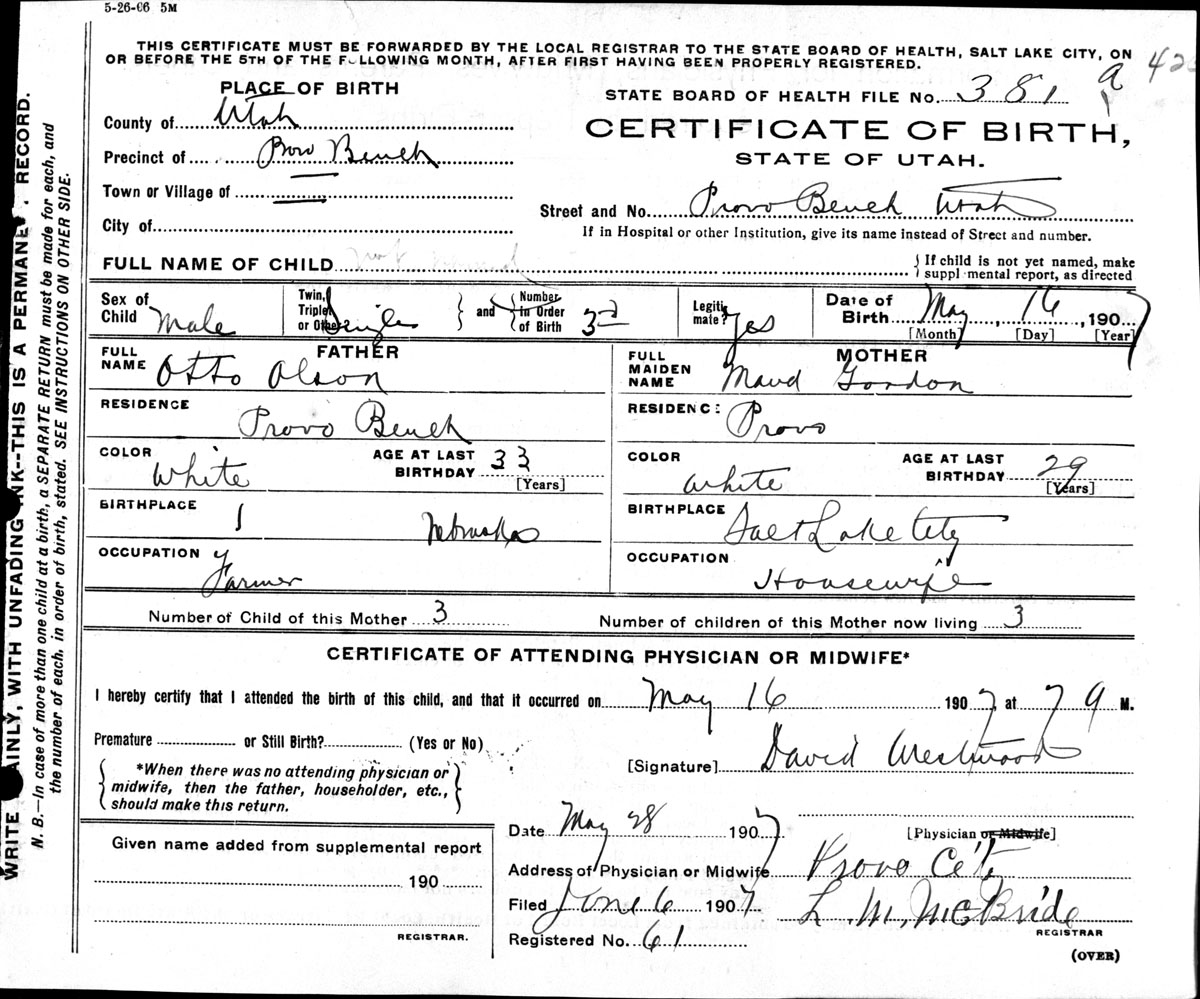 5-26-06 5M
THIS CERTIFICATE MUST BE FORWARDED BY THE LOCAL REGISTRAR TO THE STATE BOARD OF HEALTH, SALT LAKE CITY, ON
OR BEFORE THE 5TH OF THE FOLLOWING MONTH, AFTER FIRST HAVING BEEN PROPERLY REGISTERED.
PLACE OF BIRTH
County of Utah
Precinct of Prov Bench
Town or Village of
City of
STATE BOARD OF HEALTH FILE No. 381 a
CERTIFICATE OF BIRTH,
STATE OF UTAH.
Street and No. Provo Bench Utah
If in Hospital or other Institution, give its name instead of Street and number.
FULL NAME OF CHILD not named
If child is not yet named, make
suppl mental report, as directed
Sex of Child Male
Twin, Triplet or Other Single and Number In Order of Birth 3rd
Legitimate? Yes
Date of Birth May 16, 1907
[Month] [Day] [Year]
FATHER
FULL NAME Otto Olson
RESIDENCE Provo Bench
COLOR White AGE AT LAST BIRTHDAY 33
[Years]
BIRTHPLACE Nebraska
OCCUPATION Farmer
MOTHER
FULL MAIDEN NAME Maud Gordon
RESIDENCE Provo
COLOR White AGE AT LAST BIRTHDAY 29
[Years]
BIRTHPLACE Salt Lake City
OCCUPATION Housewife
Number of Child of this Mother 3 Number of children of this Mother now living 3
CERTIFICATE OF ATTENDING PHYSICIAN OR MIDWIFE*
I hereby certify that I attended the birth of this child, and that it occurred on May 16 1907, at 7 9 M.
Premature or Still Birth? (Yes or No)
*When there was no attending physician or
midwife, then the father, householder, etc.,
should make this return.
[Signature] David Westwood
Date May 28 1907 [Physician or Midwife]
Address of Physician or Midwife Provo City
Filed June 6 1907 L. M. McBride
REGISTRAR
Registered No. 61
(OVER)
Given name added from supplemental report
190
REGISTRAR.
WRITE AINLY, WITH UNFADING INK--THIS IS A PERMANENT RECORD.
N. B.—In case of more than one child at a birth, a SEPARATE RETURN must be made for each, and
the number of each, in order of birth, stated. SEE INSTRUCTIONS ON OTHER SIDE.